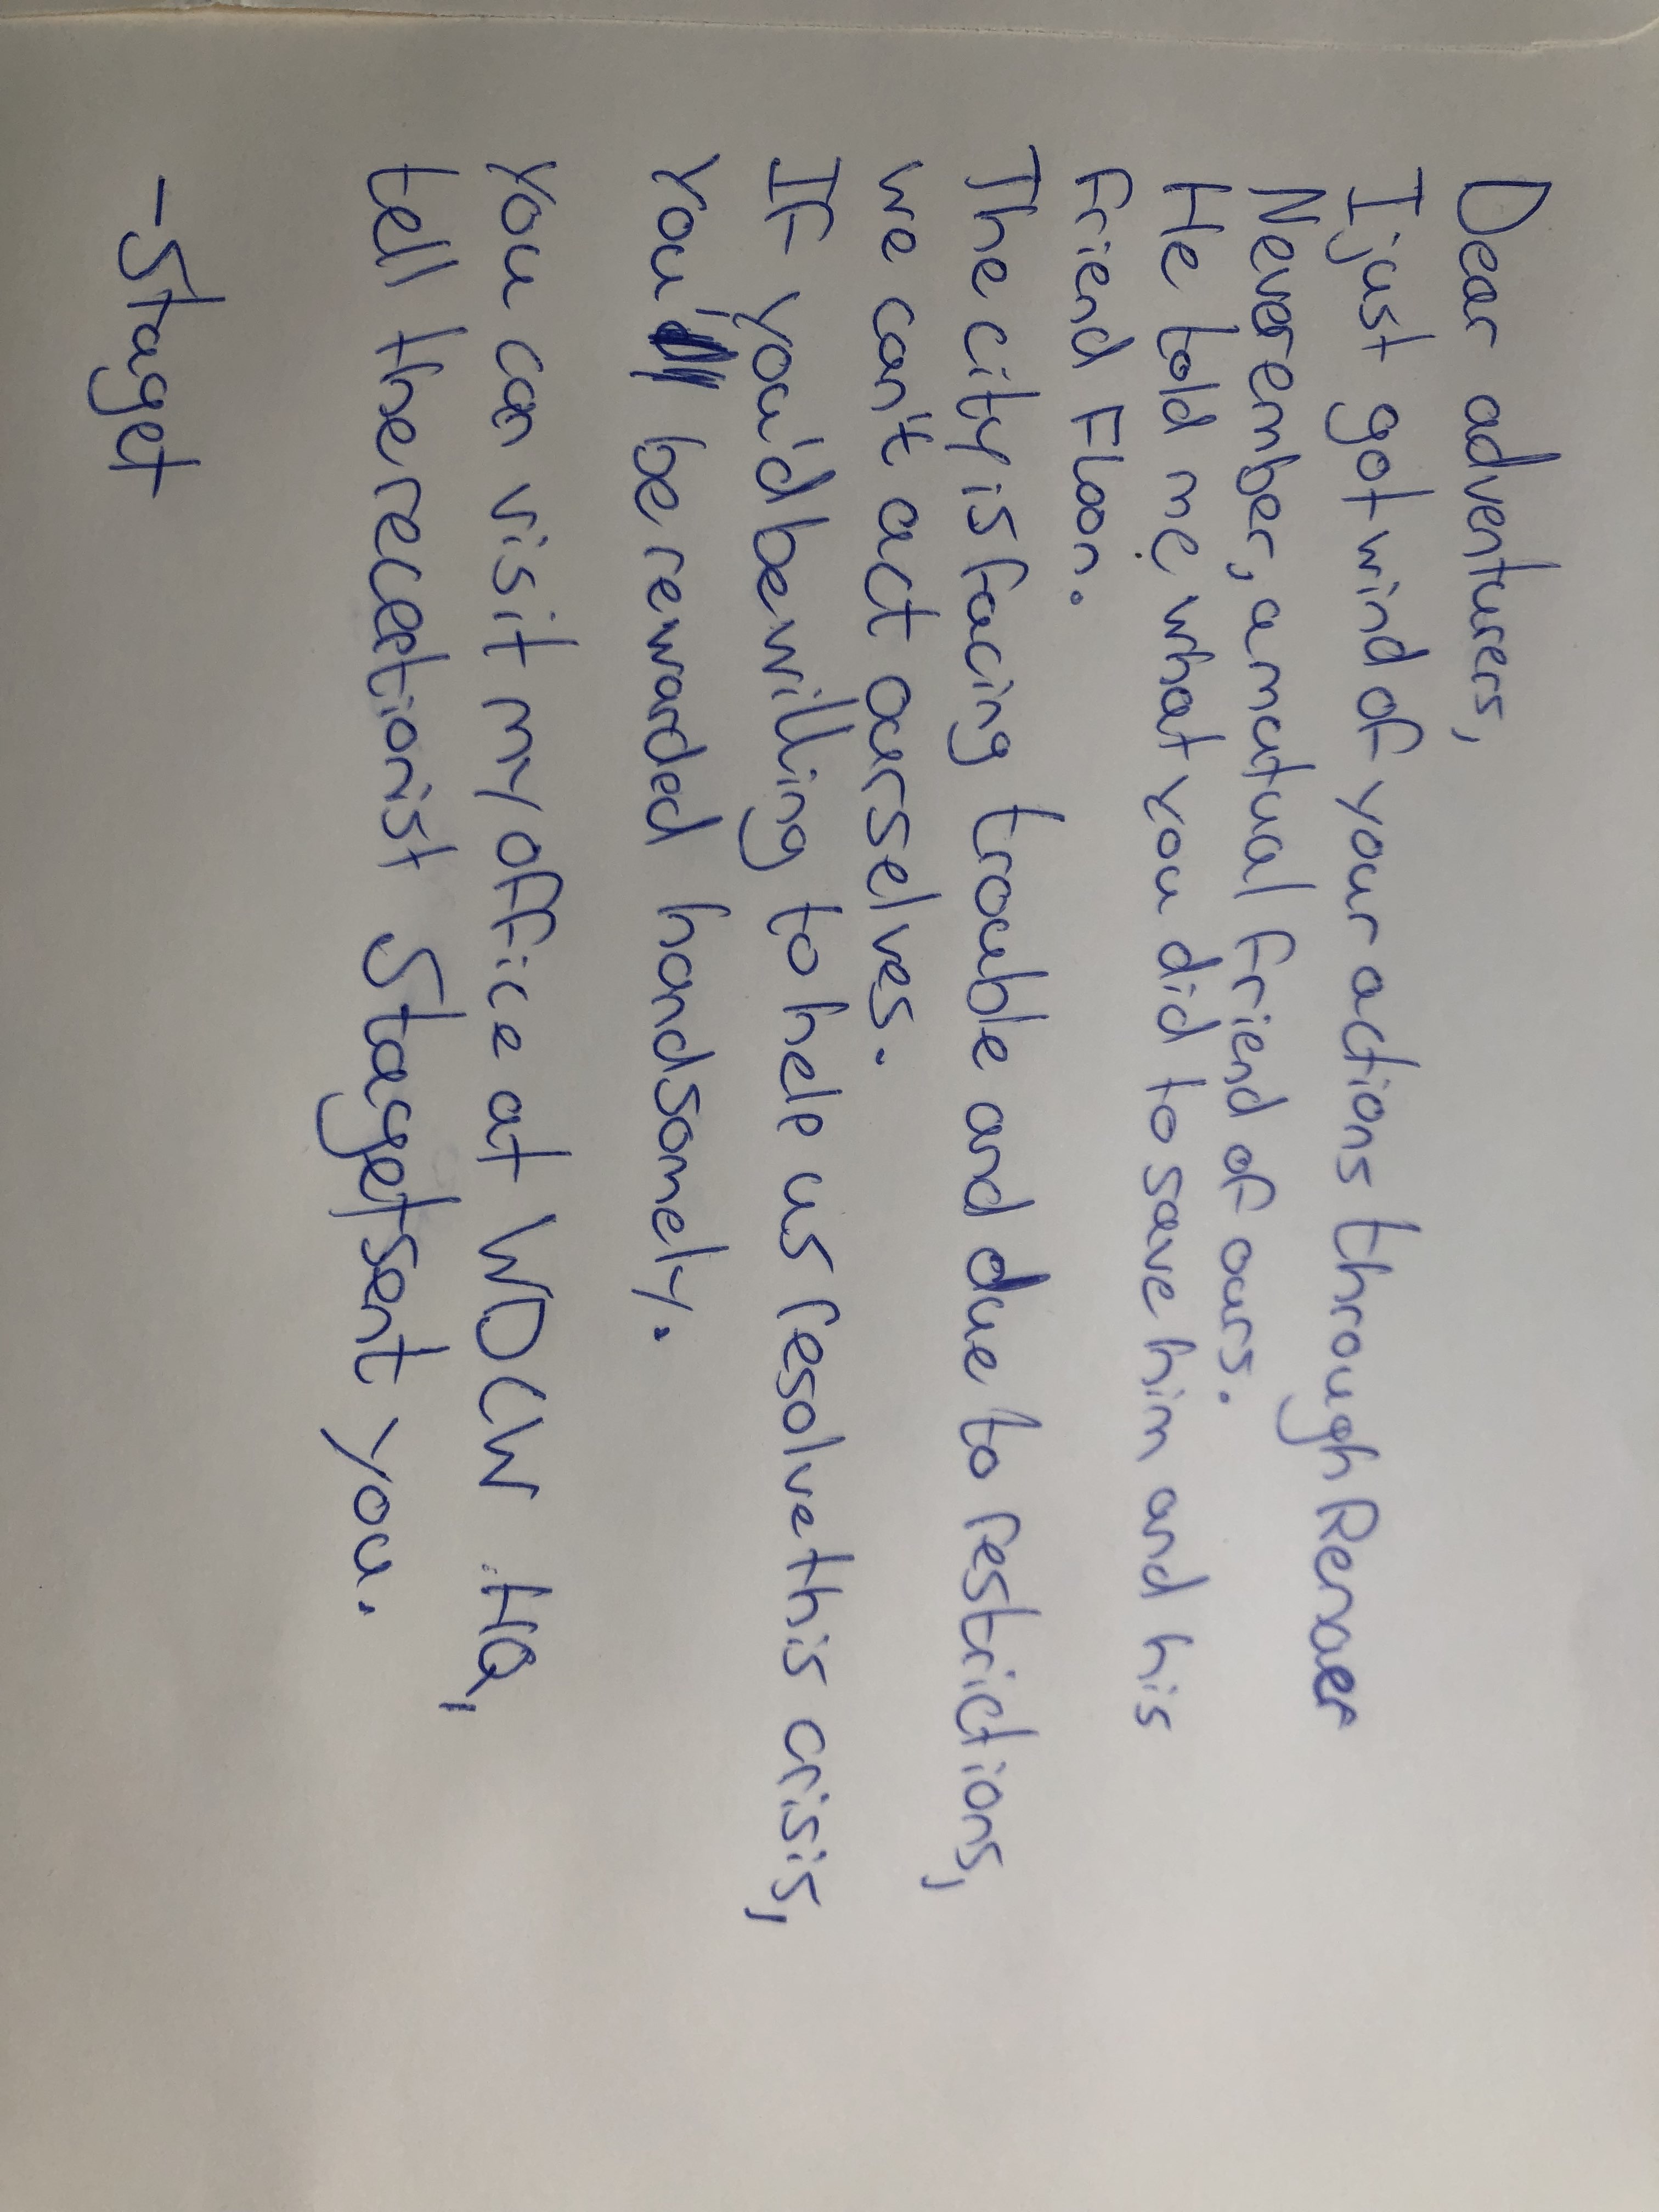 Dear adventurers,
I just got wind of your actions through Renaer
Neverember, a mutual friend of ours.
He told me what you did to save him and his
friend Floon.
The city is facing trouble and due to restrictions,
we can't act ourselves.
If you'd be willing to help us resolve this crisis,
You'll be rewarded handsomely.
You can visit my office at WDCW HQ,
tell the receptionist Staget sent you.
-Staget